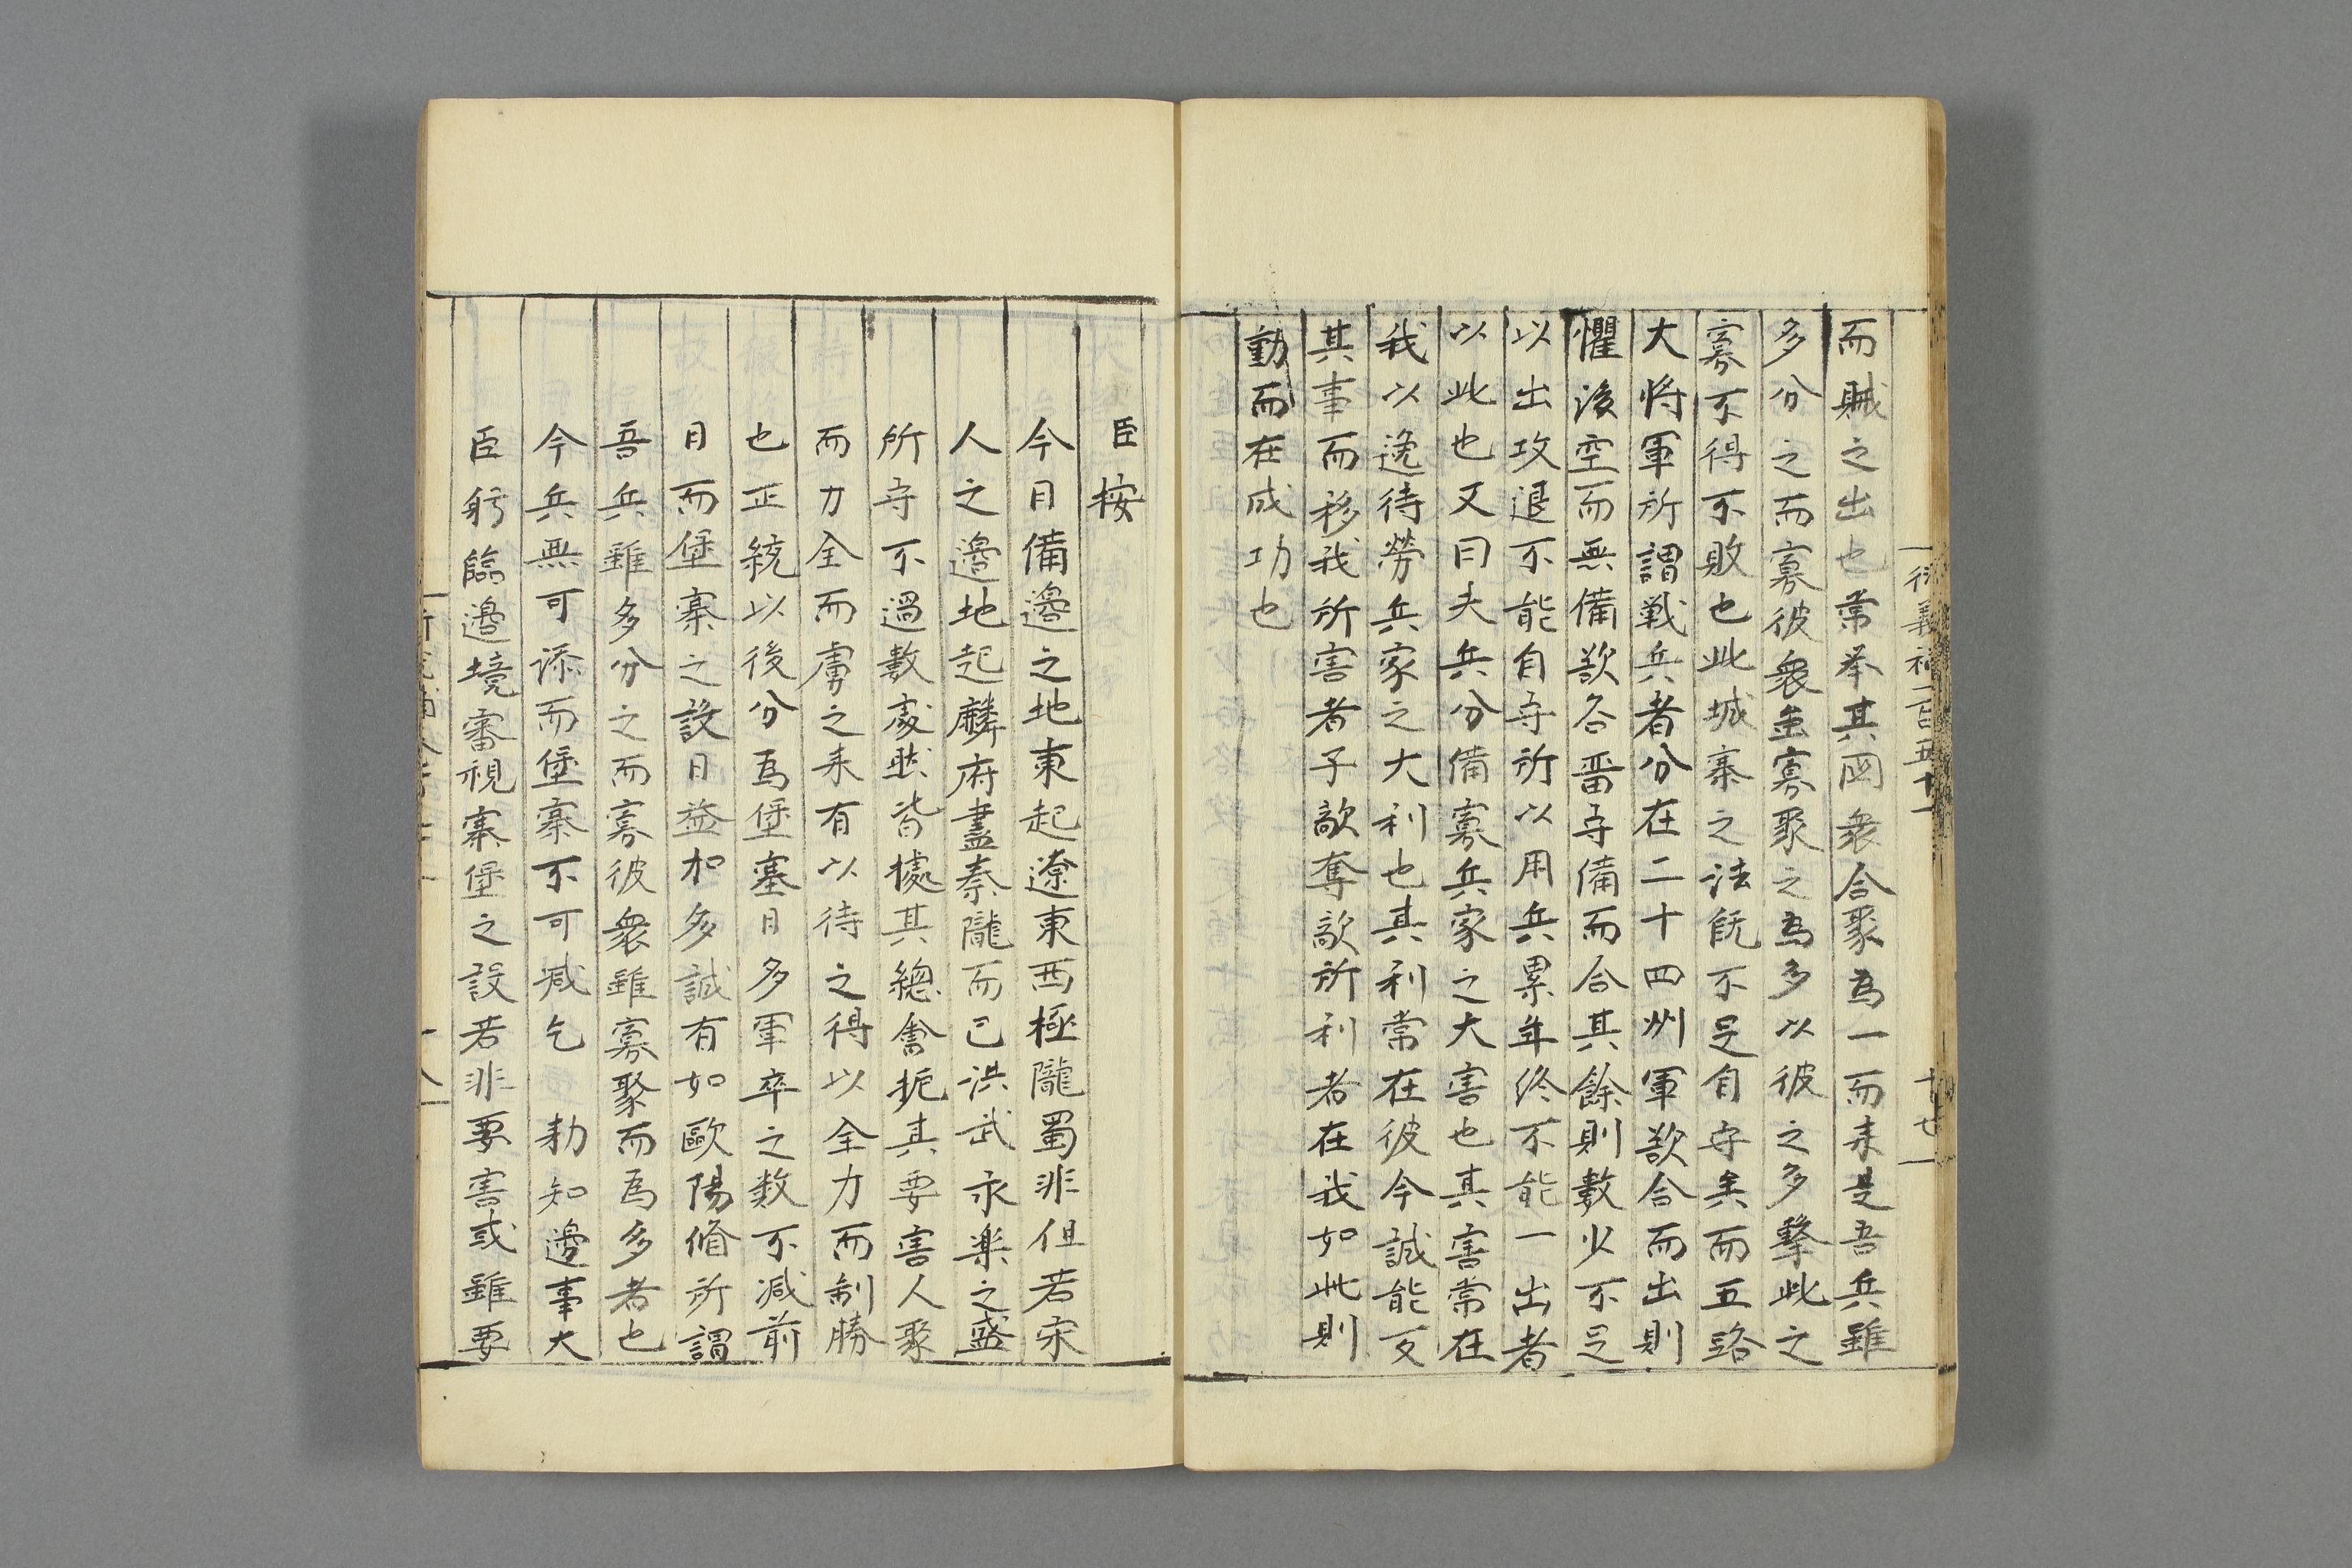 衍義補一百五十一 十七
而賊之出也常举其囯衆合聚為一而来是吾兵雖
多分之而寡彼衆虽寡聚之為多以彼之多擊此之
寡不得不敗也此城寨之法旣不足自守矣而五路
大将軍所謂戦兵者分在二十四州軍欲合而出則
懼後空而無備欲各畱守備而合其餘則數少不足
以出攻退不能自守所以用兵累年终不能一出者
以此也又曰夫兵分備寡兵家之大害也其害常在
我以逸待勞兵家之大利也其利常在彼今誠能反
其事而移我所害者予敵奪敵所利者在我如此則
動而在成功也
臣按
今日備邊之地東起遼東西極隴蜀非但若宋
人之邊地起麟府盡秦隴而已洪武永楽之盛
所守不過數處然皆據其總會扼其要害人聚
而力全而虜之来有以待之得以全力而制勝
也正統以後分爲堡塞日多軍卒之数不减前
日而堡寨之設日益加多誠有如歐陽脩所謂
吾兵雖多分之而寡彼衆雖寡聚而爲多者也
今兵無可添而堡寨不可减乞 勅知邊事大
臣躬臨邊境審視寨堡之設若非要害或雖要